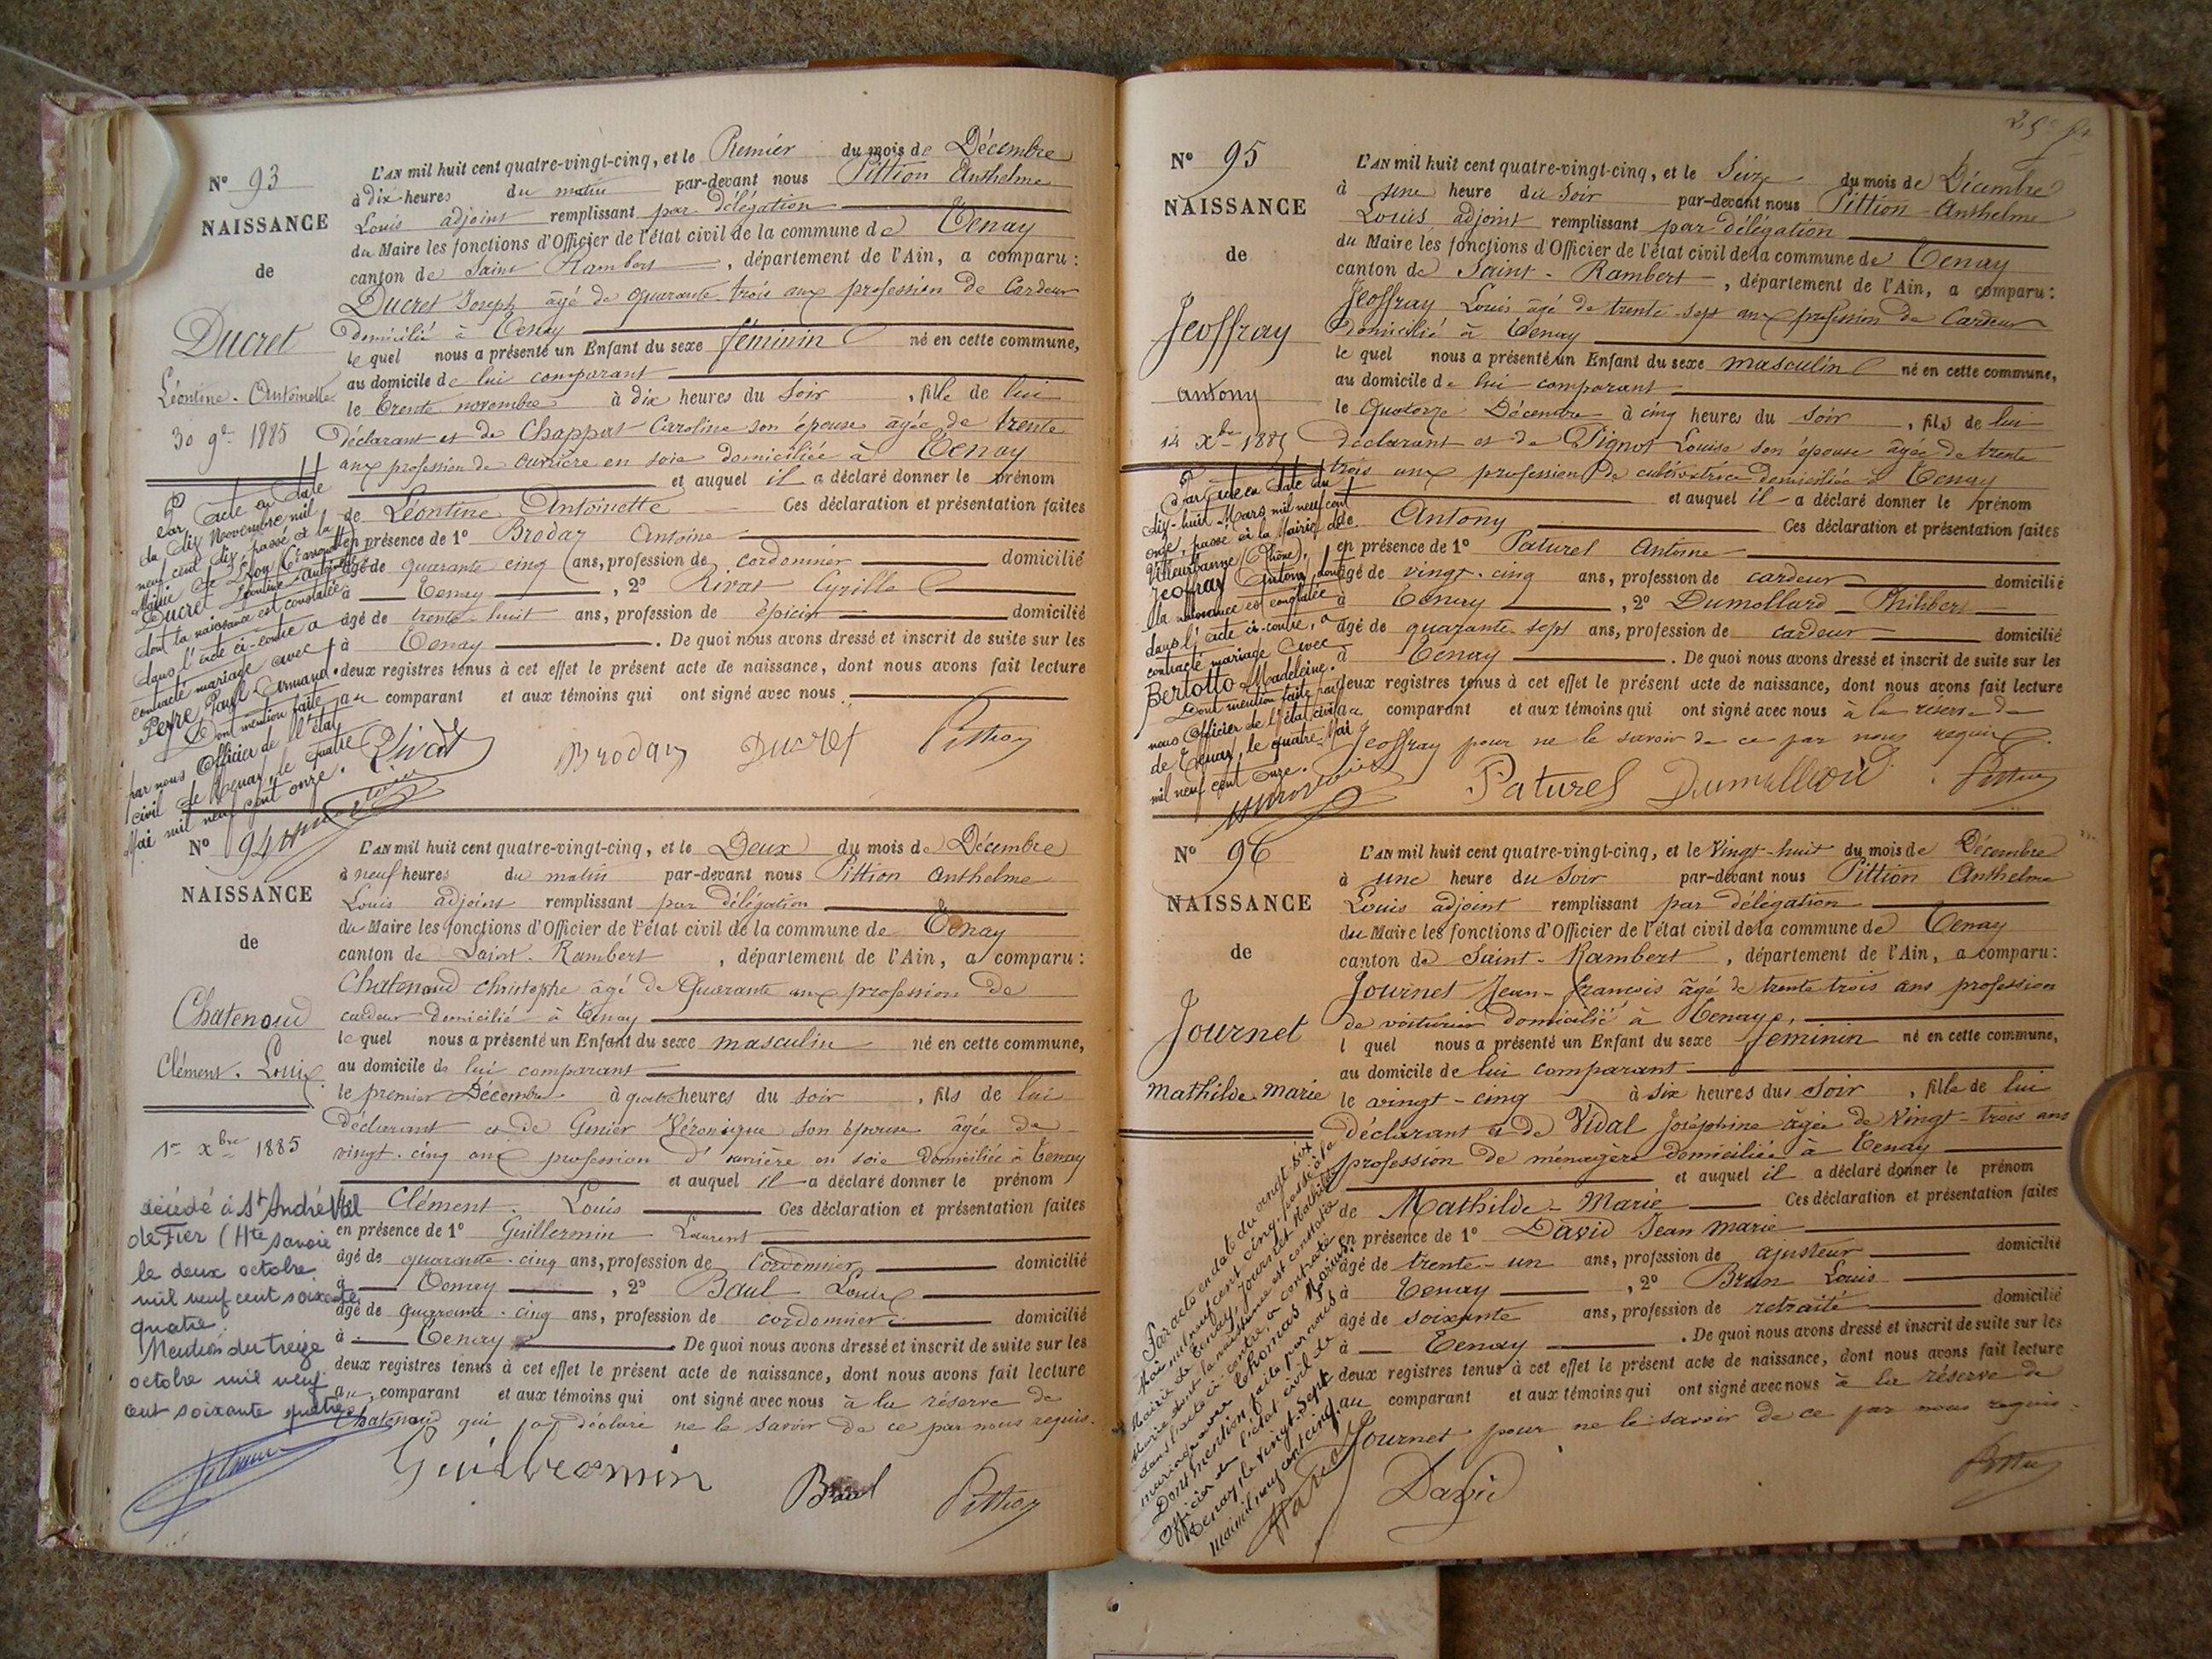 N° 93
NAISSANCE
de
Ducret
Léontine. Antoinette
30 9e 1885
L'AN mil huit cent quatre-vingt-cinq, et le Premier du mois de Décembre
à dix heures du matin par-devant nous Pittion Anthelme
Louis adjoint remplissant par délégation
du Maire les fonctions d'Officier de l'état civil de la commune de Tenay
canton de Saint Rambert, département de l'Ain, a comparu :
Ducret Joseph âgé de quarante trois ans profession de Cardeur
domicilié à Tenay
le quel nous a présenté un Enfant du sexe féminin né en cette commune,
au domicile de lui comparant
le trente novembre à dix heures du soir, fille de lui
déclarant et de Chappat Caroline son épouse âgée de trente
ans profession de ouvrière en soie domiciliée à Tenay
et auquel il a déclaré donner le prénom
de Léontine Antoinette Ces déclaration et présentation faites
en présence de 1° Brodaz Antoine
âgé de quarante cinq ans, profession de cordonnier domicilié
à Tenay, 2° Rivat Cyrille
âgé de trente-huit ans, profession de épicier domicilié
à Tenay. De quoi nous avons dressé et inscrit de suite sur les
deux registres tenus à cet effet le présent acte de naissance, dont nous avons fait lecture
au comparant et aux témoins qui ont signé avec nous
Par acte en date
du dix Novembre mil
neuf cent dix, passé à la
Mairie de Lyon
Ducret Léontine-Antoinette
dont la naissance est constatée
dans l'acte ci-contre a
contracté mariage avec
Peyre Paul Armand.
Dont mention faite
par nous Officier de l'état
civil de Tenay, le quatre
Mai mil neuf cent onze.
Rivat Brodaz Ducret Pittion
N° 94
NAISSANCE
de
Chatenoud
Clément. Louis
1er Xbre 1885
L'AN mil huit cent quatre-vingt-cinq, et le Deux du mois de Décembre
à neuf heures du matin par-devant nous Pittion Anthelme
Louis adjoint remplissant par délégation
du Maire les fonctions d'Officier de l'état civil de la commune de Tenay
canton de Saint-Rambert, département de l'Ain, a comparu :
Chatenoud christophe âgé de Quarante ans profession de
cardeur domicilié à Tenay
le quel nous a présenté un Enfant du sexe masculin né en cette commune,
au domicile de lui comparant
le premier Décembre à quatre heures du soir, fils de lui
déclarant et de Genier Véronique son épouse âgée de
vingt-cinq ans profession d'ouvrière en soie domiciliée à Tenay
et auquel il a déclaré donner le prénom
Clément. Louis Ces déclaration et présentation faites
en présence de 1° Guillermin Laurent
âgé de quarante-cinq ans, profession de Cordonnier domicilié
à Tenay, 2° Baul Louis
âgé de quarante-cinq ans, profession de cordonnier domicilié
à Tenay. De quoi nous avons dressé et inscrit de suite sur les
deux registres tenus à cet effet le présent acte de naissance, dont nous avons fait lecture
au comparant et aux témoins qui ont signé avec nous à la réserve de
Chatenoud qui a déclaré ne le savoir de ce par nous requis.
décédé à St André Val
de Fier (Hte Savoie
le deux octobre
mil neuf cent soixante
quatre.
Mention du treize
octobre mil neuf
cent soixante quatre
Guillermin Baul Pittion
N° 95
NAISSANCE
de
Jeoffray
antony
14 Xbre 1885
L'AN mil huit cent quatre-vingt-cinq, et le Seize du mois de Décembre
à une heure du Soir par-devant nous Pittion-Anthelme
Louis adjoint remplissant par délégation
du Maire les fonctions d'Officier de l'état civil de la commune de Tenay
canton de Saint-Rambert, département de l'Ain, a comparu :
Jeoffray Louis âgé de trente-sept ans profession de Cardeur
domicilié à Tenay
le quel nous a présenté un Enfant du sexe masculin né en cette commune,
au domicile de lui comparant
le Quatorze Décembre à cinq heures du soir, fils de lui
déclarant et de Pignot Louise son épouse âgée de trente
trois ans profession de domiciliée à Tenay
et auquel il a déclaré donner le prénom
de Antony Ces déclaration et présentation faites
en présence de 1° Paturel Antoine
âgé de vingt-cinq ans, profession de cardeur domicilié
à Tenay, 2° Dumollard Philibert
âgé de quarante-sept ans, profession de cardeur domicilié
à Tenay. De quoi nous avons dressé et inscrit de suite sur les
deux registres tenus à cet effet le présent acte de naissance, dont nous avons fait lecture
au comparant et aux témoins qui ont signé avec nous à la réserve de
Jeoffray pour ne le savoir de ce par nous requis.
Par acte en date du
dix-huit Mars mil neuf cent
onze, passé à la Mairie de
Villeurbanne (Rhône),
Jeoffray Antony dont
la naissance est constatée
dans l'acte ci-contre, a
contracté mariage avec
Bertotto Madeleine.
Dont mention faite par
nous Officier de l'état civil
de Tenay, le quatre Mai
mil neuf cent onze.
Paturel Dumollard Pittion
N° 96
NAISSANCE
de
Journet
Mathilde Marie
L'AN mil huit cent quatre-vingt-cinq, et le Vingt-huit du mois de Décembre
à une heure du Soir par-devant nous Pittion Anthelme
Louis adjoint remplissant par délégation
du Maire les fonctions d'Officier de l'état civil de la commune de Tenay
canton de Saint-Rambert, département de l'Ain, a comparu :
Journet Jean-francois âgé de trente trois ans profession
de voiturier domicilié à Tenay
l quel nous a présenté un Enfant du sexe féminin né en cette commune,
au domicile de lui comparant
le vingt-cinq à six heures du soir, fille de lui
déclarant et de Vidal Joséphine âgée de Vingt-trois ans
profession de ménagère domiciliée à Tenay
et auquel il a déclaré donner le prénom
de Mathilde-Marie Ces déclaration et présentation faites
en présence de 1° David Jean Marie
âgé de trente-un ans, profession de ajusteur domicilié
à Tenay, 2° Brun Louis
âgé de soixante ans, profession de retraité domicilié
à Tenay. De quoi nous avons dressé et inscrit de suite sur les
deux registres tenus à cet effet le présent acte de naissance, dont nous avons fait lecture
au comparant et aux témoins qui ont signé avec nous à la réserve de
Journet pour ne le savoir de ce par nous requis.
Par acte en date du vingt six
Mai mil neuf cent cinq, passé à la
Mairie de Tenay, Journet Mathilde
Marie dont la naissance est constatée
dans l'acte ci-contre, a contracté
mariage avec Thomas Marius.
Dont mention faite par nous
Officier de l'état civil de
Tenay, le vingt-sept
Mai mil neuf cent cinq.
David Pittion